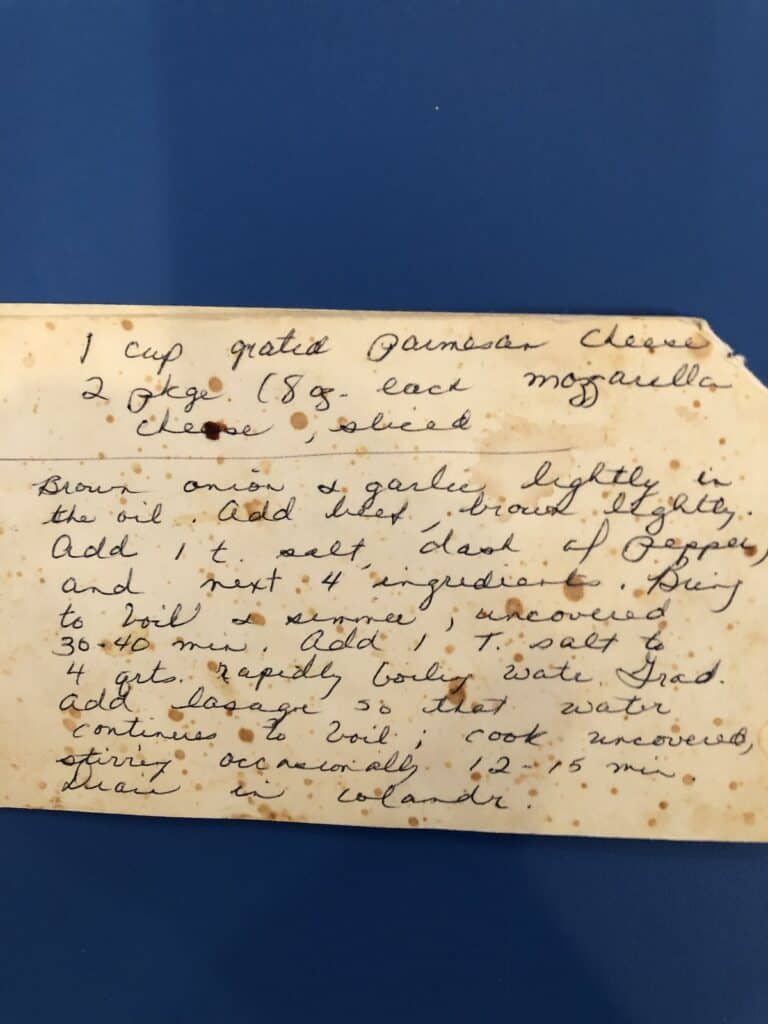 1 cup grated Parmesan Cheese
2 pkge. (8 oz. each mozzarella
cheese, sliced
Brown onion & garlic lightly in
the oil. Add beef, brown lightly.
Add 1 t. salt, dash of pepper,
and next 4 ingredients. Bring
to boil & simmer, uncovered
30-40 min. Add 1 T. salt to
4 qrts. rapidly boiling water. Grad.
add lasagne so that water
continues to boil; cook uncovered,
stirring occasionally 12-15 min.
Drain in colandr.